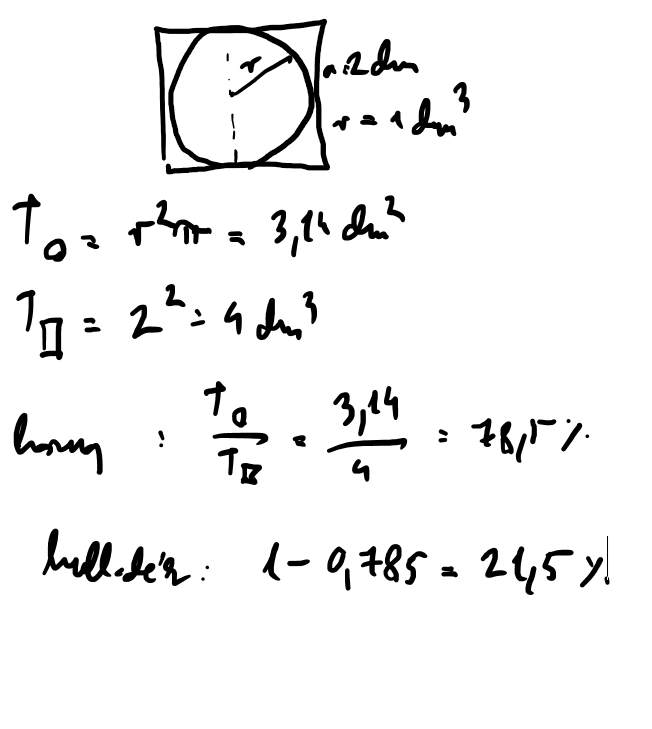 r
a: 2 dm
r = 1 dm³
T○ = r²π = 3,14 dm²
T□ = 2² = 4 dm³
: T○ / T□ = 3,14 / 4 = 78,5 %
hulladék: 1 - 0,785 = 21,5 %